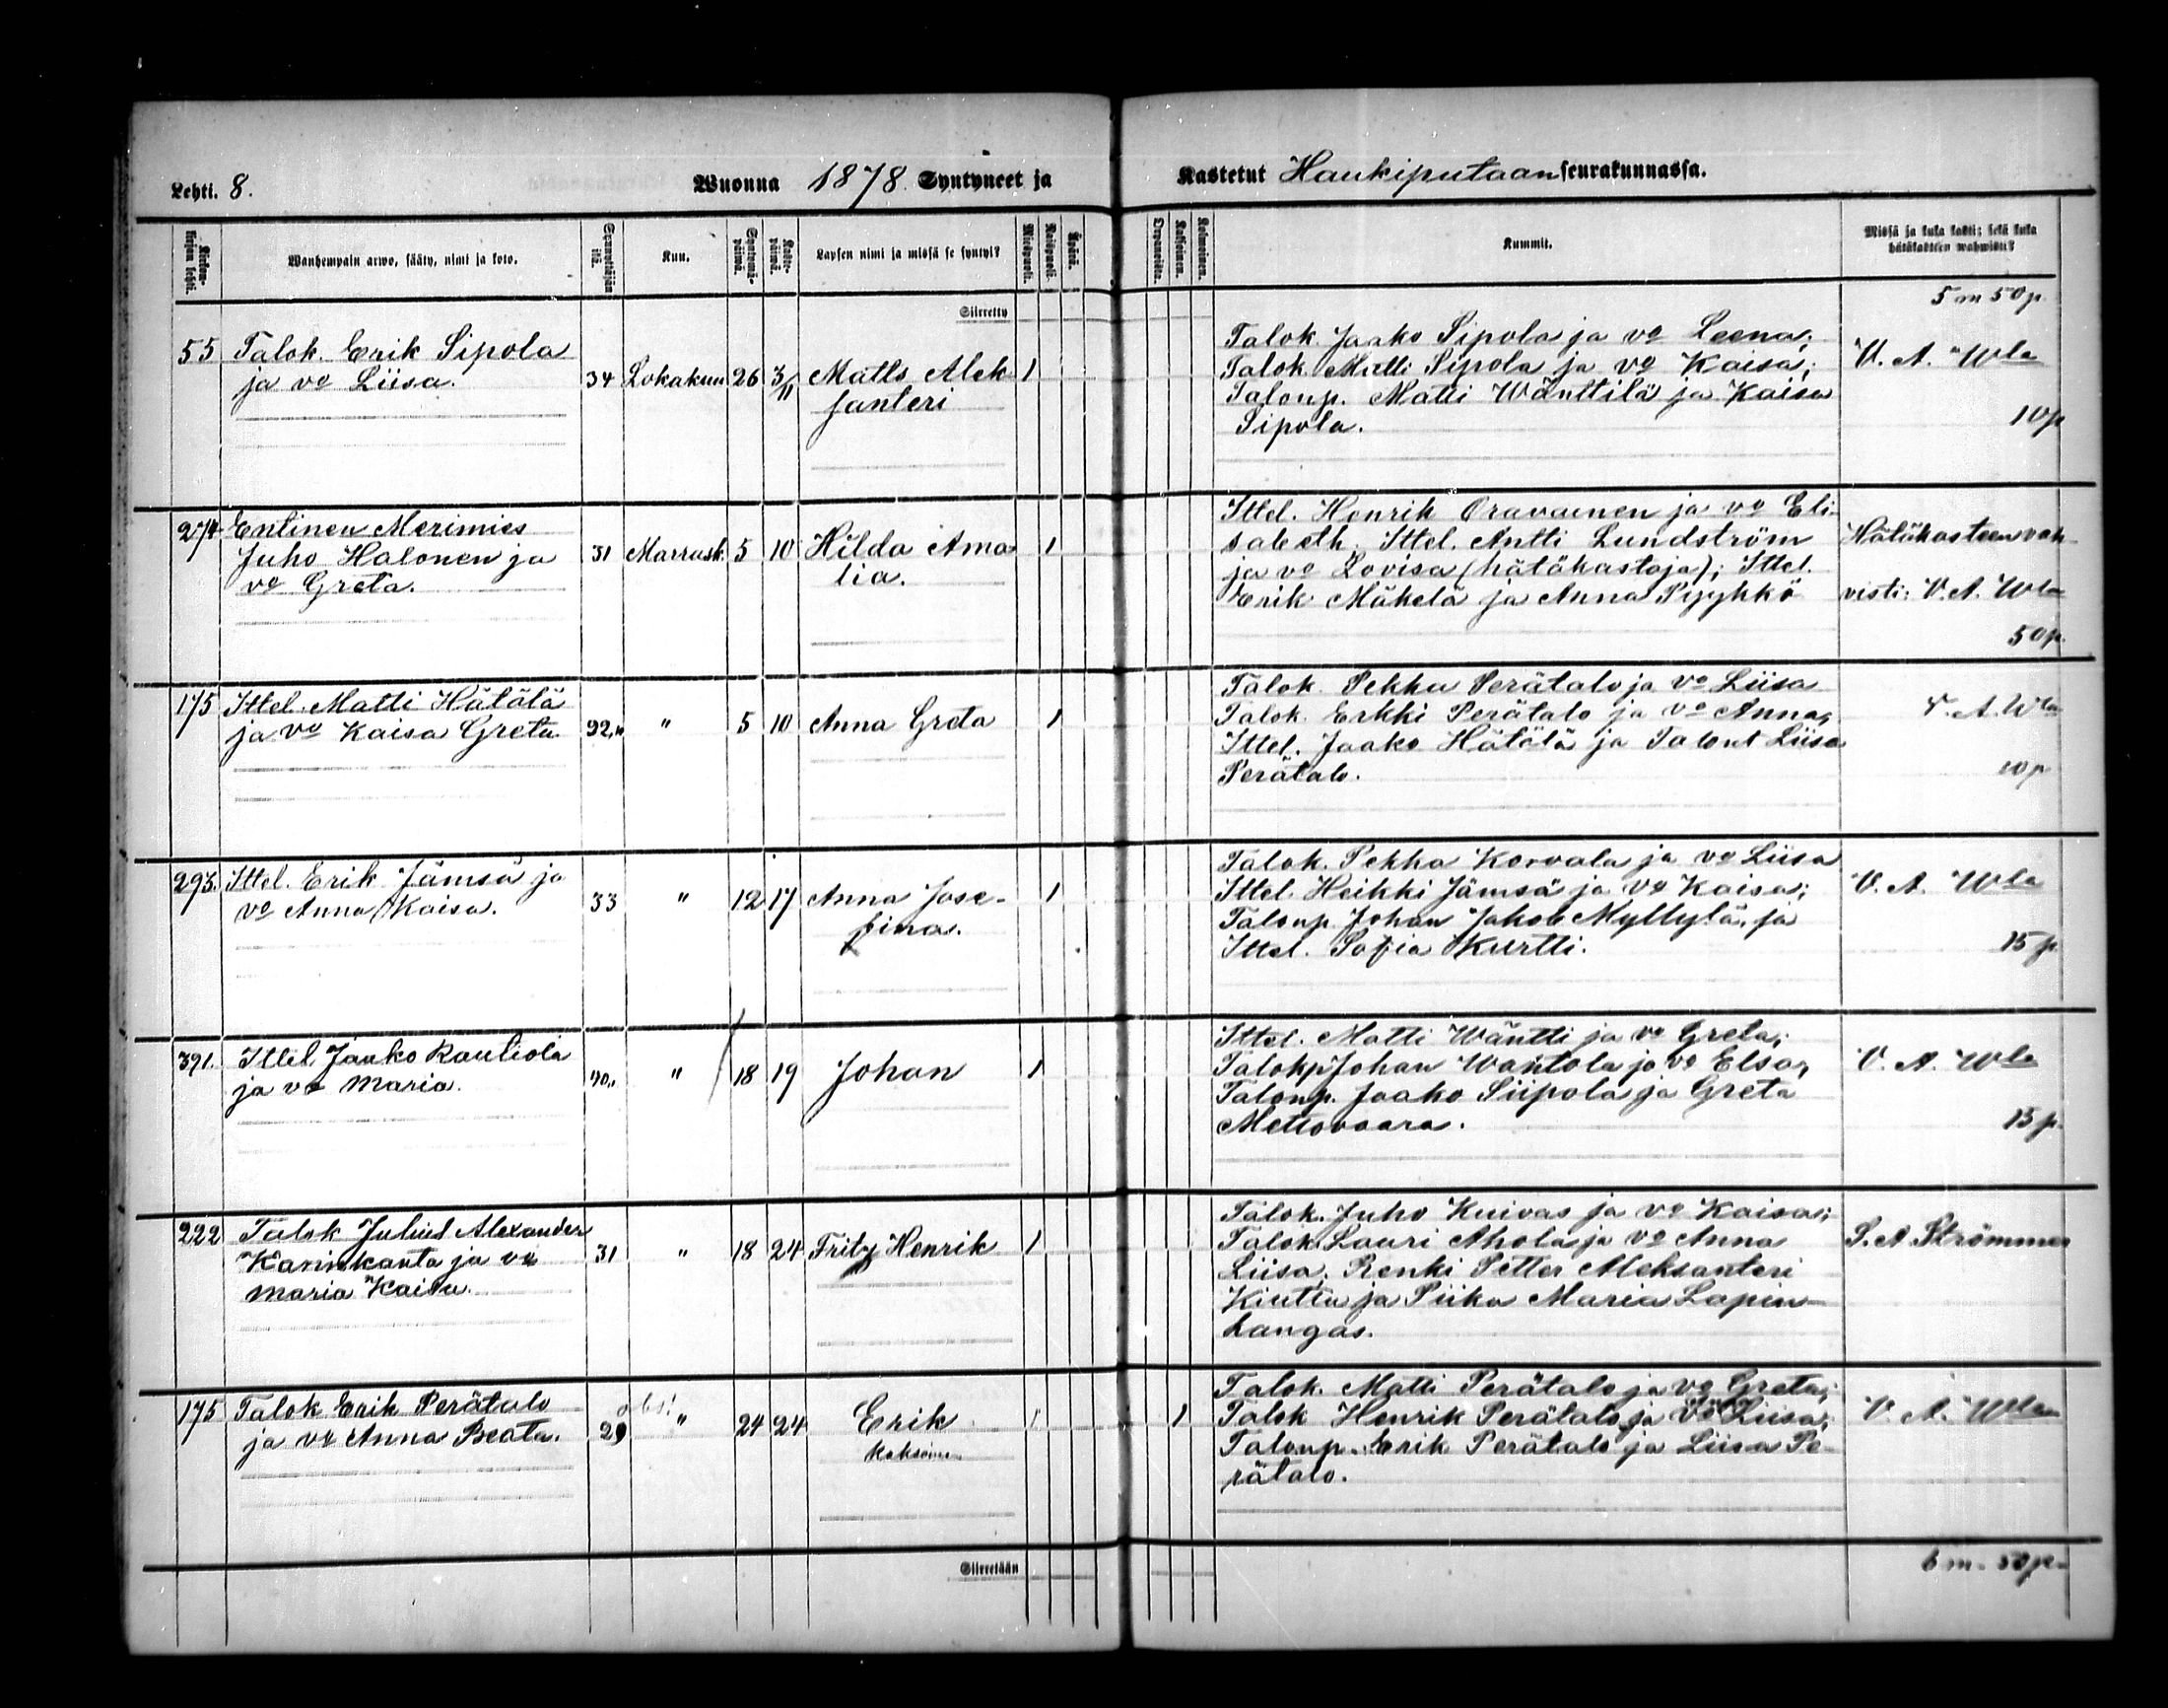 Lehti. 8.
Wuonna 1878 Syntyneet ja
Kastetut Haukiputaan seurakunnassa.
Kirkonkirjan lehti.
Wanhempain arwo, sääty, nimi ja koto.
Synnyttäjän ikä.
Kuu.
Syntymäpäiwä.
Kastepäiwä.
Lapsen nimi ja missä se syntyi?
Miespuoli.
Waispuoli.
Äpärä.
Kaksoinen.
Kolmoinen.
Kummit.
Missä ja kuka kasti; sekä kuka
hätäkasteen wahwisti?
Siirretty
5 m 50 p.
55 Talok. Erik Sipola
ja vo Liisa.
34 Lokakuu 26 3/11 Matts Alek-
santeri
1
Talok. Jaako Sipola ja vo Leena;
Talok. Matti Sipola ja vo Kaisa;
Talonp. Matti Wänttilä ja Kaisa
Sipola.
V. A. Wla
10 p
274 Entinen Merimies
Juho Halonen ja
vo Greta.
31 Marrask. 5 10 Hilda Ama-
lia.
1
Ittel. Henrik Oravainen ja vo Eli-
sabeth. Ittel. Antti Lundström
ja vo Lovisa (hätäkastaja); Ittel.
Erik Mäkelä ja Anna Pyyhkö
Hätäkasteen vah-
visti: V. A. Wla
50 p.
175 Ittel. Matti Hätälä
ja vo Kaisa Greta.
32 " 5 10 Anna Greta
1
Talok. Pekka Perätalo ja vo Liisa
Talok. Erkki Perätalo ja vo Anna;
Ittel. Jaako Hätälä ja Talont Liisa
Perätalo.
V. A. Wla
10 p
293. Ittel. Erik Jämsä ja
vo Anna Kaisa.
33 " 12 17 Anna Jose-
fina.
1
Talok. Pekka Korvala ja vo Liisa
Ittel. Heikki Jämsä ja vo Kaisa;
Talonp. Johan Jakob Myllylä, ja
Ittel. Sofia Kurtti.
V. A. Wla
15 p
391. Ittel. Jaako Rautiola
ja vo Maria.
40 " 18 19 Johan
1
Ittel. Matti Wäntti ja vo Greta;
Talokp Johan Wäntola ja vo Elsa;
Talonp. Jaako Siipola ja Greta
Metsovaara.
V. A. Wla
15 p.
222 Talok Julius Alexander
Karinkanta ja vo
Maria Kaisa.
31 " 18 24 Fritz Henrik
1
Talok. Juho Kuivas ja vo Kaisa;
Talok Lauri Ahola ja vo Anna
Liisa; Renki Petter Aleksanteri
Kiutta ja Piika Maria Lapin-
kangas.
S. A. Strömmer
175 Talok Erik Perätalo
ja vo Anna Beata.
29 obs! " 24 24 Erik
kaksoinen
1
1
Talok. Matti Perätalo ja vo Greta;
Talok Henrik Perätalo ja vo Liisa;
Talonp. Erik Perätalo ja Liisa Pe-
rätalo.
V. A. Wla
Siirretään
6 m. 50 p.